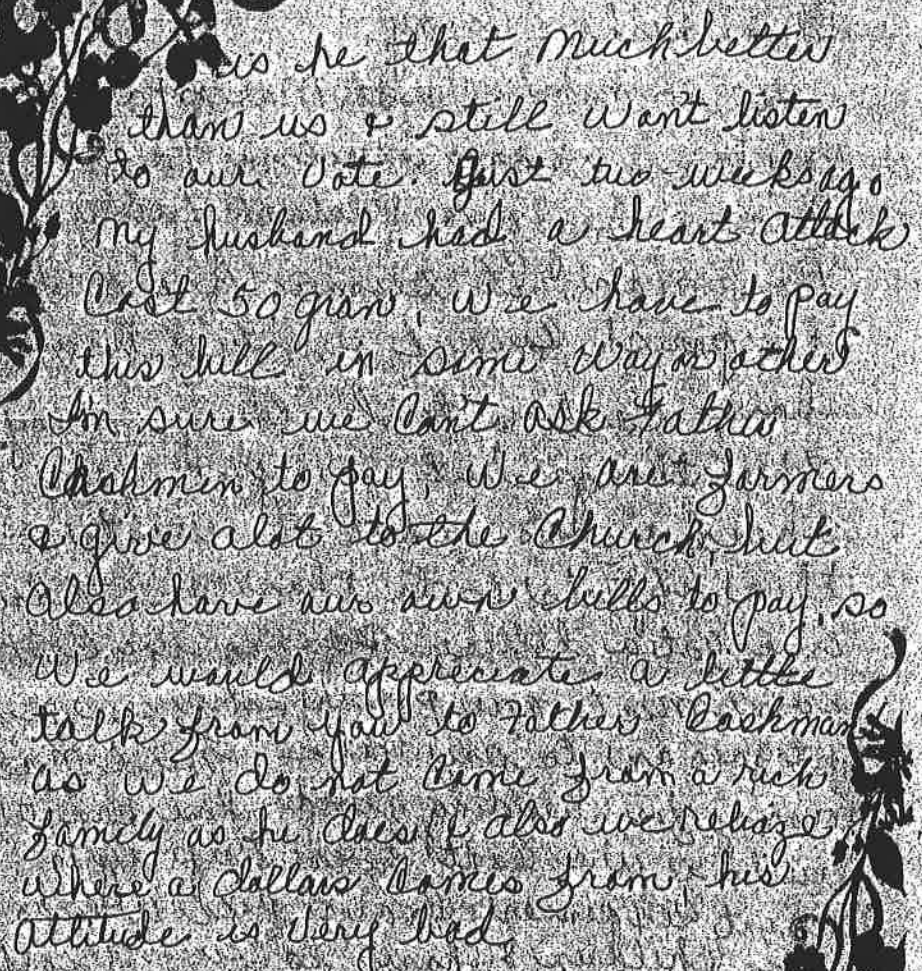 is he that much better
than us & still won't listen
to our vote. Just two weeks ago
my husband had a heart attack
Cost 50 gran, We have to pay
this bill in some way or other
I'm sure we can't ask Father
Cashmen to pay, We are farmers
& give alot to the Church, but
Also have our own bills to pay, so
We would appreciate a little
talk from you to Father Cashman
as we do not come from a rich
family as he does & also we reliaze
where a dollars comes from, his
attitude is very bad,